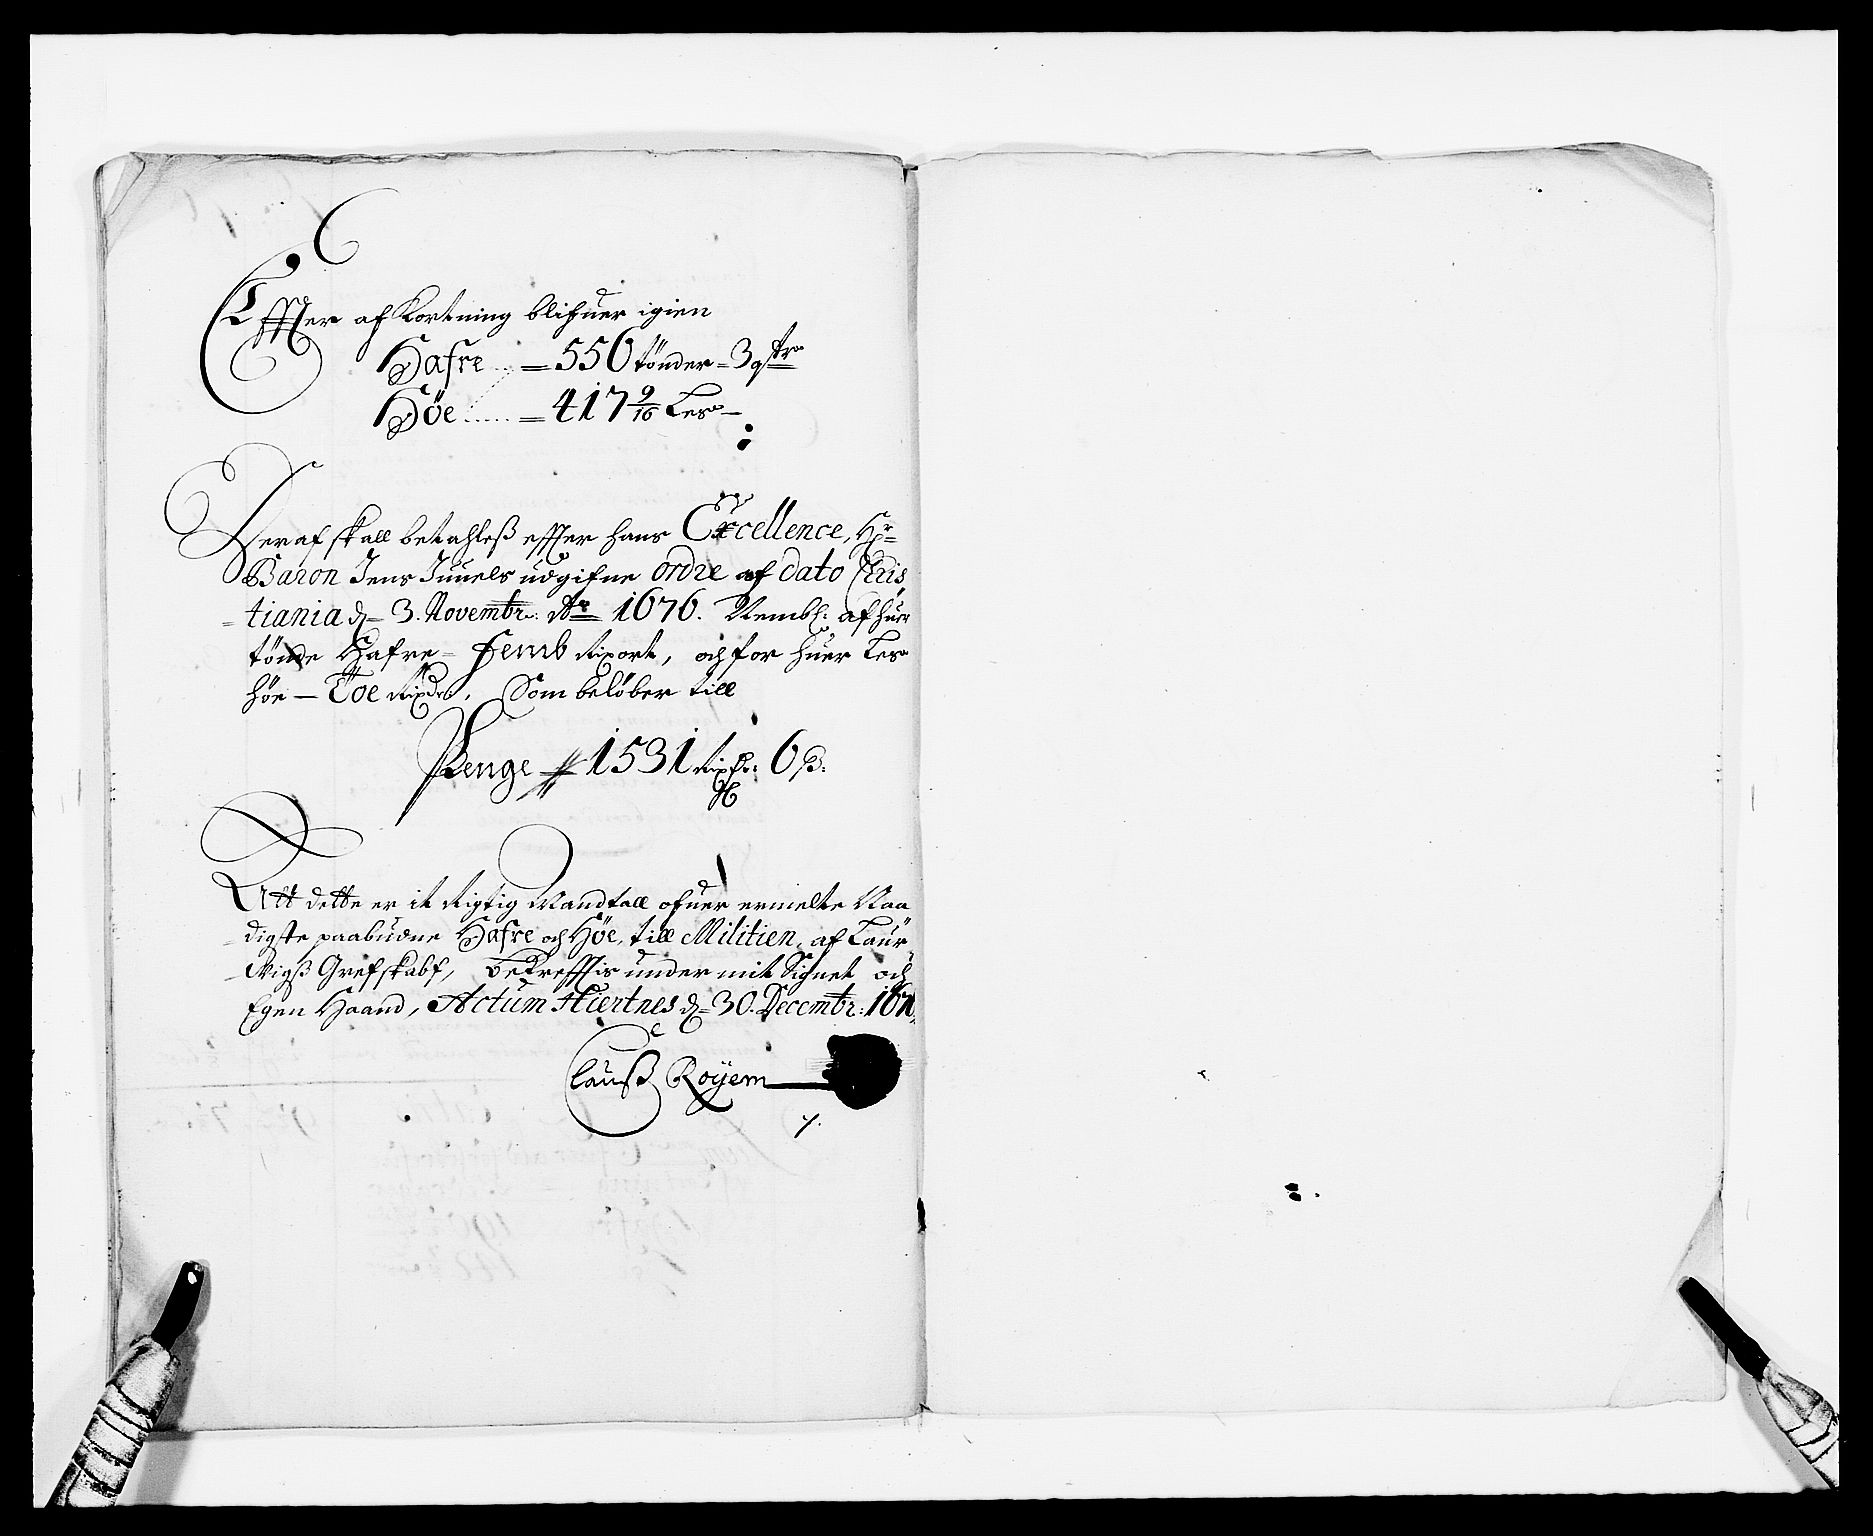 Effter afkortning blifuer igien
Hafre .. = 556 tønder = 3 qrtr
Høe ..... = 417 9/16 Les —
Heraf skall betahleß effter hans Excellence, Hr=
Baron Jens Juuels udgifne ordre af dato Chris
= tiania d= 3. Novembr: Ao 1676. Nembl: af huer
tønde Hafre = femb Rixort, och for huer Les
høe — Toe Rixdr, Som beløber till
Penge 1531 Rixdr: 6 ß:
Att dette er it Rigtig Mandtall ofuer ermelte Naa
= digste paabudne Hafre och Høe, till Militien, af Laur
= Wigß Grefskabf, bekrefftis under mit Signet och
Egen Haand, Actum Hiertnes d= 30. Decembr:
Clauß Røyem